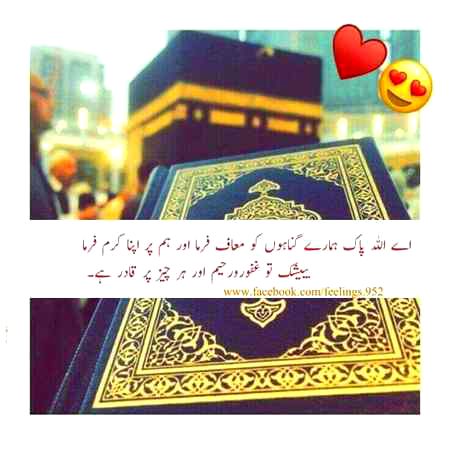 اے اللہ پاک ہمارے گناہوں کو معاف فرما اور ہم پر اپنا کرم فرما
بیشک تو غفورورحیم اور ہر چیز پر قادر ہے۔
www.facebook.com/feelings.952